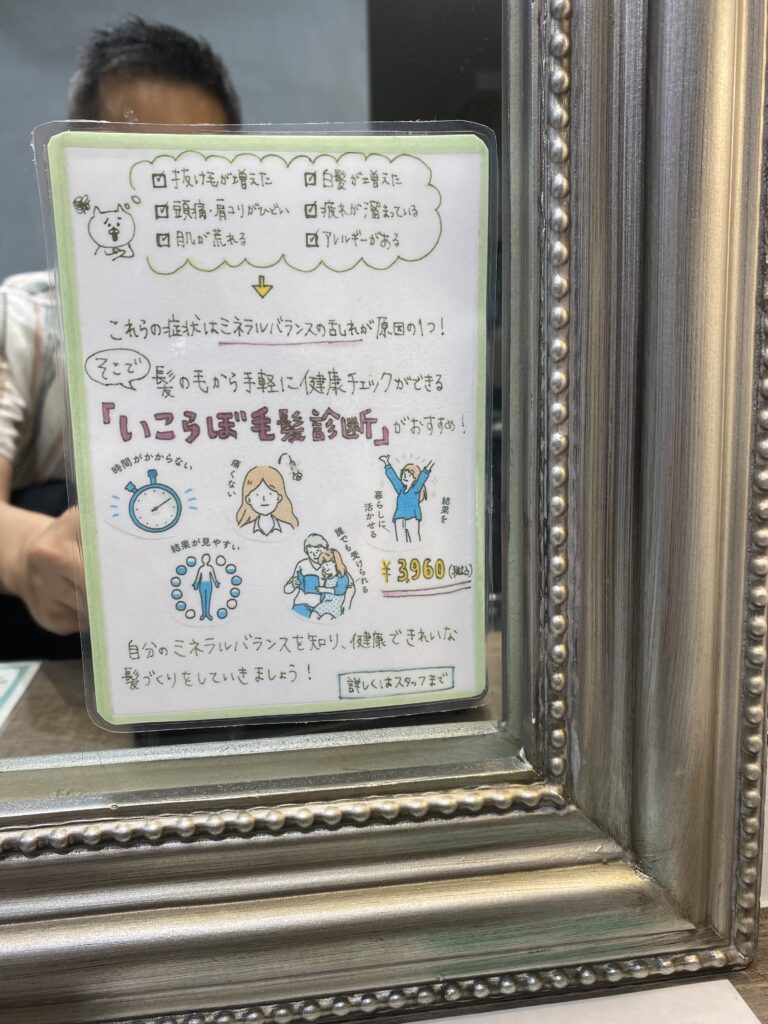 ☑ 抜け毛が増えた ☑ 白髪が増えた
☑ 頭痛・肩コリがひどい ☑ 疲れが溜まっている
☑ 肌が荒れる ☑ アレルギーがある
これらの症状はミネラルバランスの乱れが原因の1つ!
そこで 髪の毛から手軽に健康チェックができる
「いこらぼ毛髪診断」がおすすめ!
時間がかからない
痛くない
結果を
暮らしに、
活かせる
結果が見やすい
誰でも受けられる
¥3,960(税込)
自分のミネラルバランスを知り、健康できれいな
髪づくりをしていきましょう!
詳しくはスタッフまで